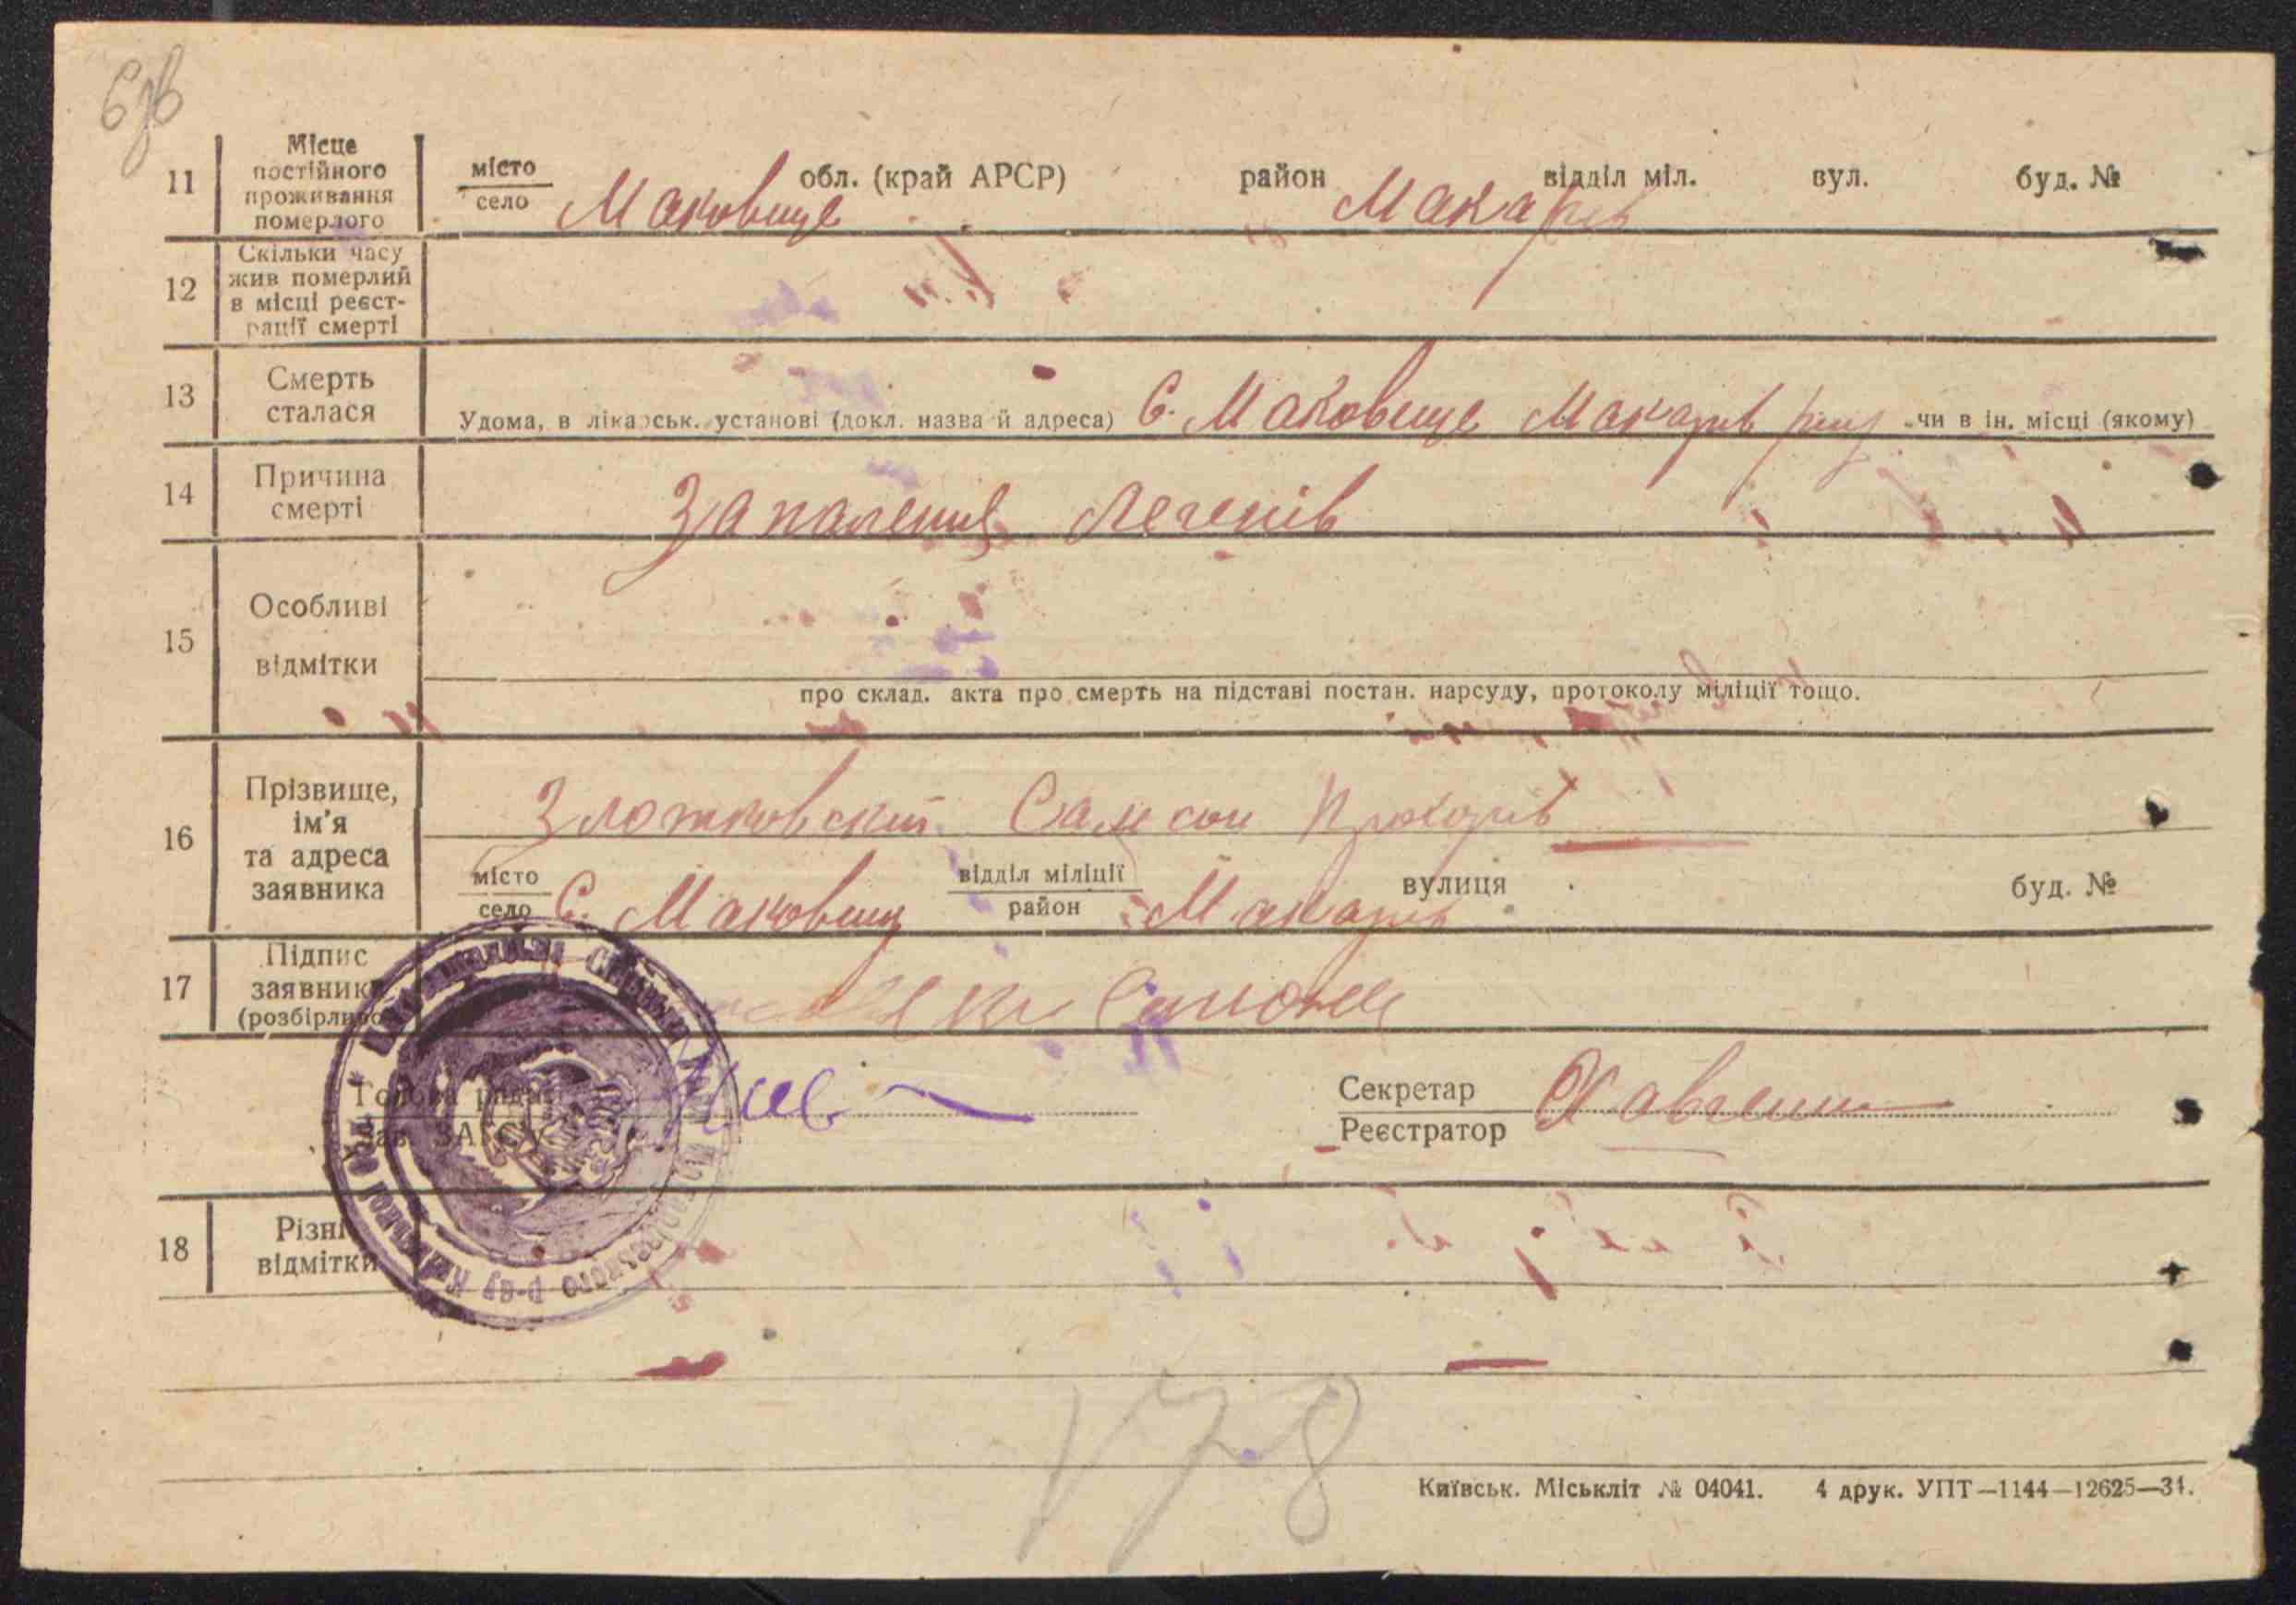 6зв
11 Місце постійного проживання померлого місто село Маковище обл. (край АРСР) район Макарів відділ міл. вул. буд. №
12 Скільки часу жив померлий в місці реєстрації смерті
13 Смерть сталася Удома, в лікарськ. установі (докл. назва й адреса) С. Маковище Макарів чи в ін. місці (якому)
14 Причина смерті Запалення легенів
15 Особливі відмітки
про склад. акта про смерть на підставі постан. нарсуду, протоколу міліції тощо.
16 Прізвище, ім'я та адреса заявника Самсон Прокопів
місто село С. Маковищ відділ міліції район Макарів вулиця буд. №
17 Підпис заявника (розбірливо)
Голова ради
Зав. ЗАГСУ
Секретар
Реєстратор
18 Різні відмітки
178
Київськ. Міськліт № 04041. 4 друк. УПТ—1144—12625—34.